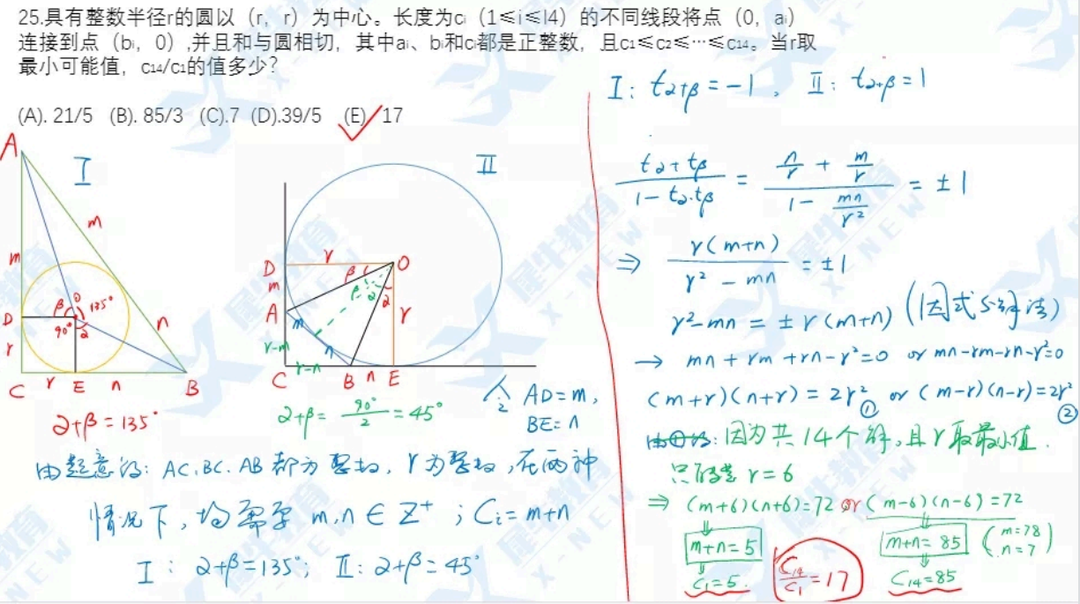 25.具有整数半径r的圆以（r，r）为中心。长度为cᵢ（1≤i≤l4）的不同线段将点（0，aᵢ）
连接到点（bᵢ，0）,并且和与圆相切，其中aᵢ、bᵢ和cᵢ都是正整数，且c₁≤c₂≤⋯≤c₁₄。当r取
最小可能值，c₁₄/c₁的值多少?
(A). 21/5 (B). 85/3 (C).7 (D).39/5 (E) 17
I
A
m
m
D
β
O
135°
n
r
90°
α
C
r
E
n
B
α+β=135°
II
D
r
O
β
β
α
α
m
A
m
r
r-m
n
r-n
C
B
n
E
α+β= 90°/2 =45°
令 AD=m,
BE=n
由题意得: AC.BC.AB都为整数, r为整数, 在两种
情况下, 均需要 m,n∈Z⁺ ; Cᵢ=m+n
I: α+β=135°; II: α+β=45°
I: tα+β=-1, II: tα+β=1
(tα+tβ)/(1-tα·tβ) = (n/r + m/r)/(1 - mn/r²) = ±1
⇒ r(m+n)/(r²-mn) = ±1
r²-mn=±r(m+n) (因式分解法)
→ mn+rm+rn-r²=0 or mn-rm-rn-r²=0
(m+r)(n+r)=2r² ① or (m-r)(n-r)=2r² ②
因为共14个解,且r取最小值.
只能是 r=6
⇒ (m+6)(n+6)=72 or (m-6)(n-6)=72
m+n=5
m+n=85
(m=78
n=7)
C₁=5.
C₁₄/C₁=17
C₁₄=85
犀牛教育
X-NEW